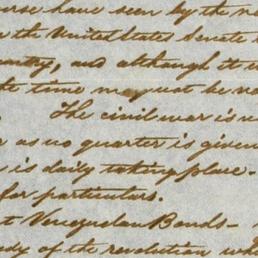 have seen by the
the United States Senate
and although it
time may not be
The civil war is
as no quarter is given
is daily taking place-
for particulars.
Venezuelan Bonds-
of the revolution